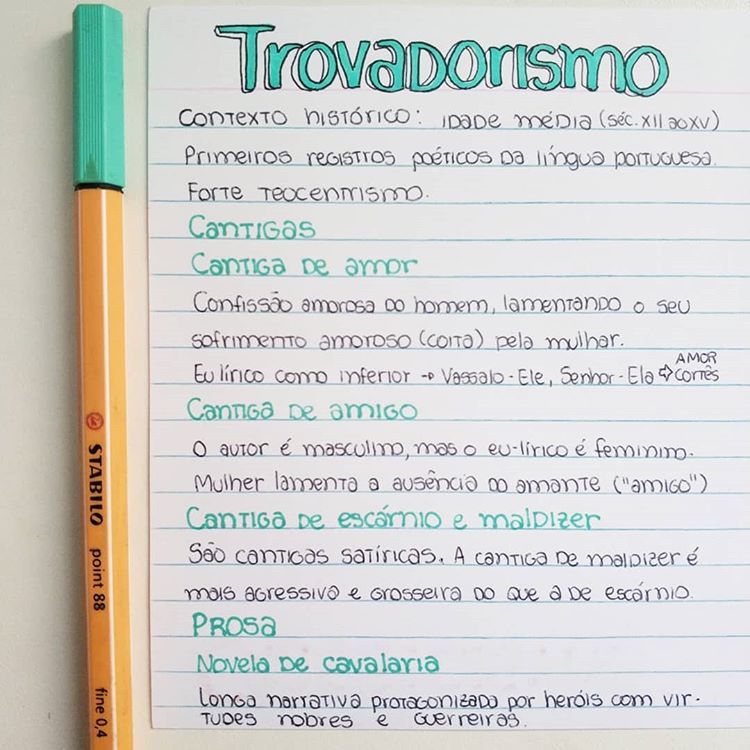 Trovadorismo
Contexto histórico: Idade média (séc. XII ao XV)
Primeiros registros poéticos da língua portuguesa.
Forte teocentrismo.
Cantigas
Cantiga de amor
Confissão amorosa do homem, lamentando o seu
sofrimento amoroso (coita) pela mulhar.
Eu lírico como inferior → Vassalo - Ele, Senhor - Ela ⇨ AMOR CORTÊS
Cantiga de amigo
O autor é masculino, mas o eu-lírico é feminino.
Mulher lamenta a ausência do amante ("amigo")
Cantiga de escárnio e maldizer
São cantigas satíricas. A cantiga de maldizer é
mais agressiva e grosseira do que a de escárnio.
Prosa
Novela de cavalaria
Longa narrativa protagonizada por heróis com vir-
tudes nobres e guerreiras.
STABILO point 88 fine 0,4